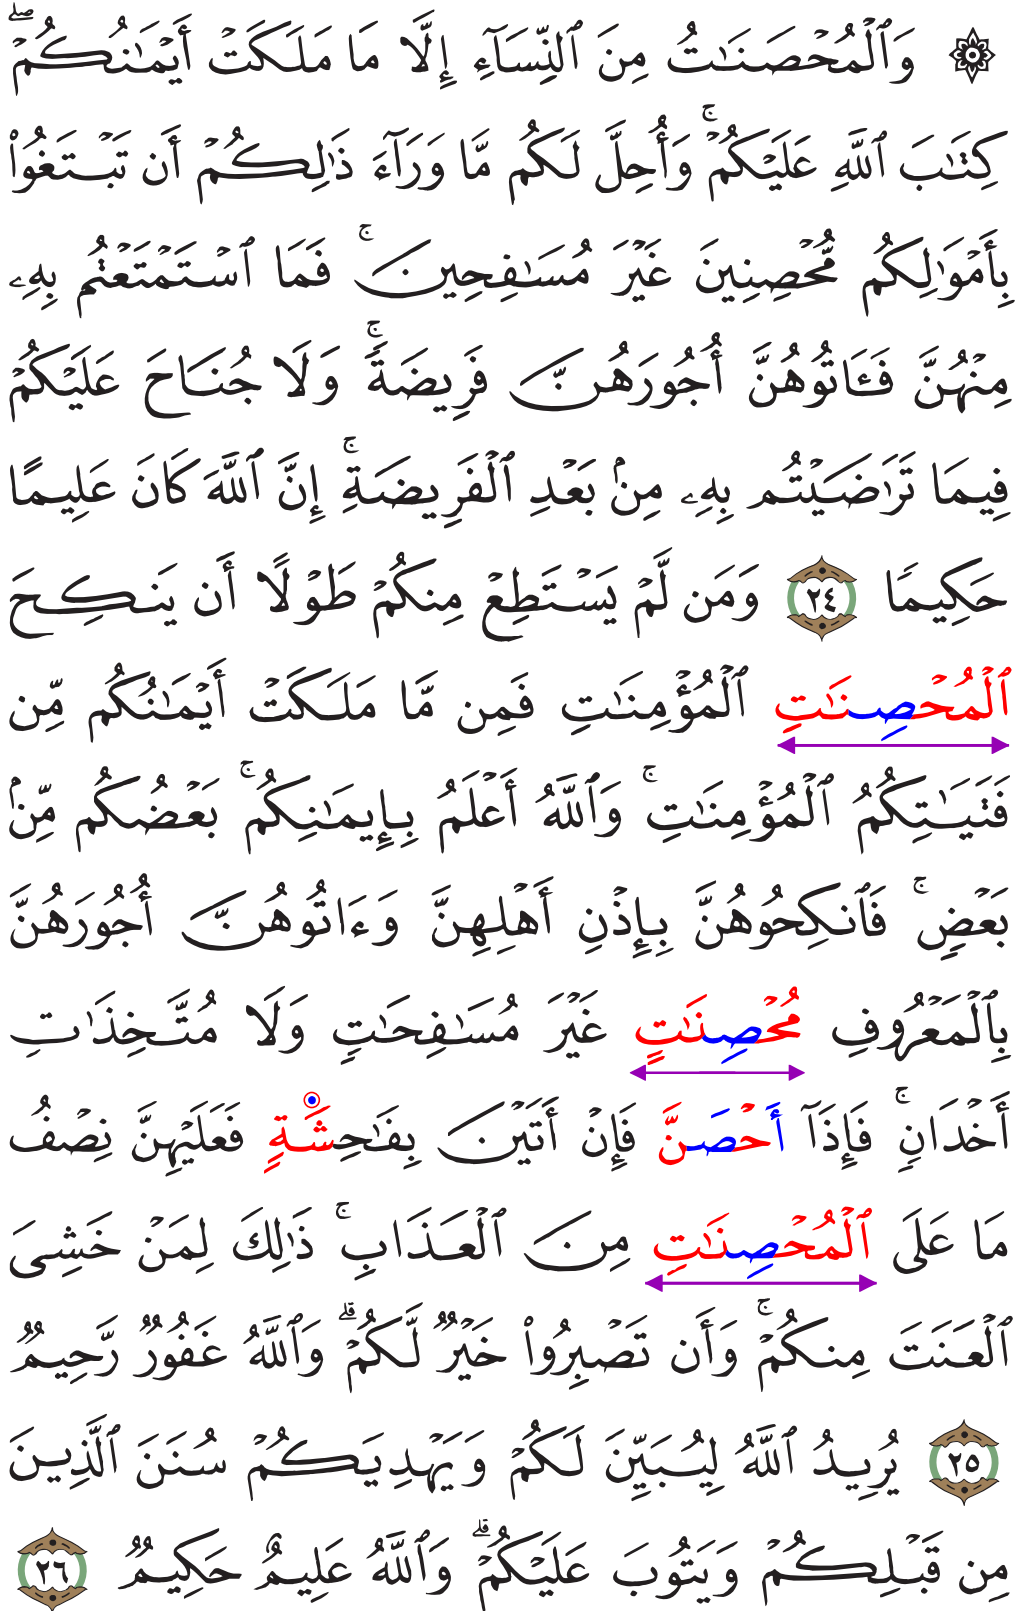 ۞ وَٱلْمُحْصَنَـٰتُ مِنَ ٱلنِّسَآءِ إِلَّا مَا مَلَكَتْ أَيْمَـٰنُكُمْ ۖ
كِتَـٰبَ ٱللَّهِ عَلَيْكُمْ ۚ وَأُحِلَّ لَكُم مَّا وَرَآءَ ذَٰلِكُمْ أَن تَبْتَغُوا۟
بِأَمْوَٰلِكُم مُّحْصِنِينَ غَيْرَ مُسَـٰفِحِينَ ۚ فَمَا ٱسْتَمْتَعْتُم بِهِۦ
مِنْهُنَّ فَـَٔاتُوهُنَّ أُجُورَهُنَّ فَرِيضَةً ۚ وَلَا جُنَاحَ عَلَيْكُمْ
فِيمَا تَرَٰضَيْتُم بِهِۦ مِنۢ بَعْدِ ٱلْفَرِيضَةِ ۚ إِنَّ ٱللَّهَ كَانَ عَلِيمًا
حَكِيمًا ٢٤ وَمَن لَّمْ يَسْتَطِعْ مِنكُمْ طَوْلًا أَن يَنكِحَ
ٱلْمُحْصِنَـٰتِ ٱلْمُؤْمِنَـٰتِ فَمِن مَّا مَلَكَتْ أَيْمَـٰنُكُم مِّن
فَتَيَـٰتِكُمُ ٱلْمُؤْمِنَـٰتِ ۚ وَٱللَّهُ أَعْلَمُ بِإِيمَـٰنِكُم ۚ بَعْضُكُم مِّنۢ
بَعْضٍ ۚ فَٱنكِحُوهُنَّ بِإِذْنِ أَهْلِهِنَّ وَءَاتُوهُنَّ أُجُورَهُنَّ
بِٱلْمَعْرُوفِ مُحْصِنَـٰتٍ غَيْرَ مُسَـٰفِحَـٰتٍ وَلَا مُتَّخِذَٰتِ
أَخْدَانٍ ۚ فَإِذَآ أَحْصَنَّ فَإِنْ أَتَيْنَ بِفَـٰحِشَةٍ فَعَلَيْهِنَّ نِصْفُ
مَا عَلَى ٱلْمُحْصِنَـٰتِ مِنَ ٱلْعَذَابِ ۚ ذَٰلِكَ لِمَنْ خَشِىَ
ٱلْعَنَتَ مِنكُمْ ۚ وَأَن تَصْبِرُوا۟ خَيْرٌ لَّكُمْ ۗ وَٱللَّهُ غَفُورٌ رَّحِيمٌ
٢٥ يُرِيدُ ٱللَّهُ لِيُبَيِّنَ لَكُمْ وَيَهْدِيَكُمْ سُنَنَ ٱلَّذِينَ
مِن قَبْلِكُمْ وَيَتُوبَ عَلَيْكُمْ ۗ وَٱللَّهُ عَلِيمٌ حَكِيمٌ ٢٦